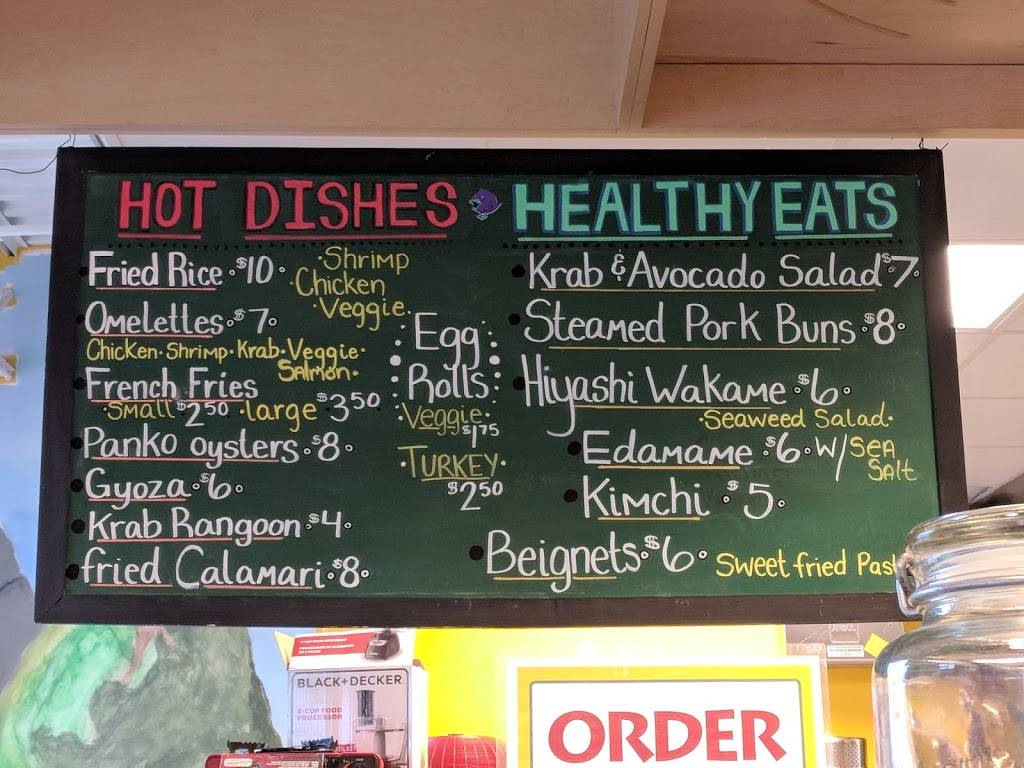 HOT DISHES
Fried Rice $10
Shrimp
Chicken
Veggie
Omelettes $7
Chicken · Shrimp · Krab · Veggie
Salmon
French Fries
Small $2.50 · large $3.50
Panko oysters $8
Gyoza $6
Krab Rangoon $4
fried Calamari $8
Egg
Rolls
Veggie
$1.75
TURKEY
$2.50
HEALTHY EATS
Krab & Avocado Salad $7
Steamed Pork Buns $8
Hiyashi Wakame $6
Seaweed Salad
Edamame $6 w/ SEA
SALT
Kimchi $5
Beignets $6 Sweet fried
BLACK+DECKER
8-CUP FOOD
PROCESSOR
ORDER